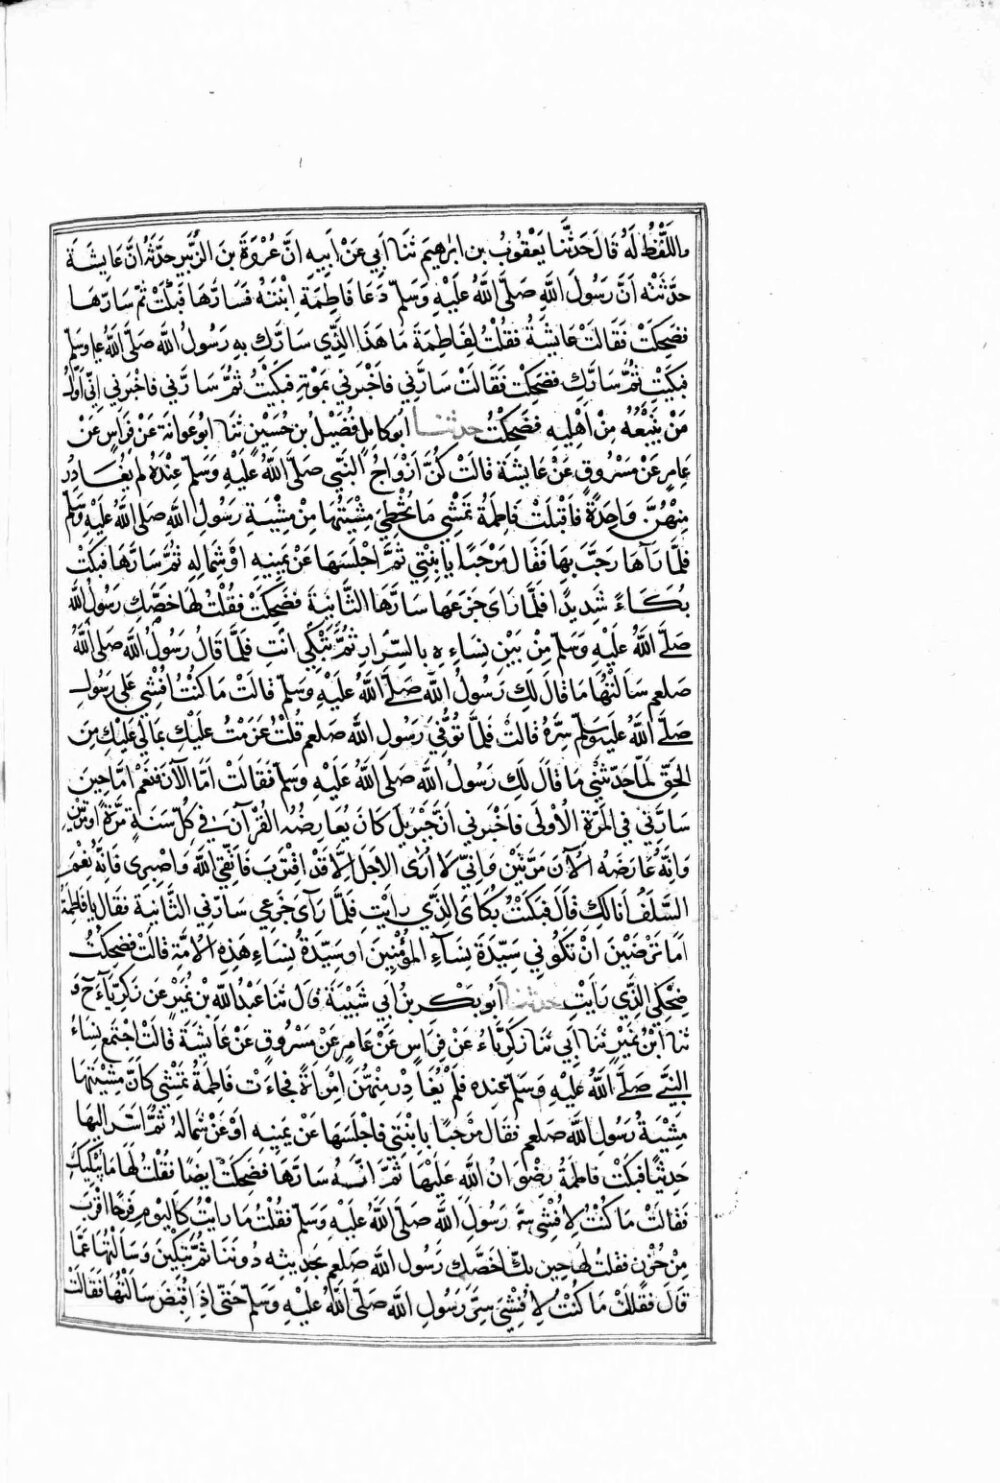 واللَّفْظُ لَهُ قَالَ حَدَّثَنَا يَعْقُوبُ بن ابرٰهيمَ ثَنَا اَبي عَنْ اَبِيهِ انَّ عُرْوَةَ بنَ الزُّبَيرِ حَدَّثَهُ انَّ عَايِشَةَ
حدَّثَتْهُ اَنَّ رَسُولَ اللَّهِ صَلَّى اللَّهُ عَلَيْهِ وَسَلَّمَ دَعَا فَاطِمَةَ ابْنَتَهُ فَسَارَّهَا فَبَكَتْ ثُمَّ سَارَّهَا
فضَحِكَتْ فَقَالَتْ عَايِشَةُ فَقُلْتُ لِفَاطِمَةَ مَا هَذَا الَّذِي سَارَّكِ بِهِ رَسُولُ اللَّهِ صَلَّى اللَّهُ علي وسَلَّم
فبَكَيْتِ ثُمَّ سَارَّكِ فضَحِكْتِ فَقَالَتْ سَارَّنِي فَاخْبَرَني بمَوْتِهِ فبَكَيْتُ ثُمَّ سَارَّني فاخْبَرَني اَنِّي اَوَّلُ
مَنْ يَتْبَعُهُ مِنْ اَهْلِهِ فضَحِكْتُ حدثنا ابُو كَامِلٍ فُضَيْلُ بن حُسَيْنٍ ثنَا ابو عَوانَةَ عَنْ فِرَاسٍ عَنْ
عَامِرٍ عَنْ مَسْرُوقٍ عَنْ عَايشَةَ قَالَتْ كُنَّ اَزْوَاجُ النَّبِي صَلَّى اللَّهُ عَلَيْهِ وَسَلَّمَ عِنْدَهُ لم يُغَادَرْ
مِنْهُنَّ وَاحِدَةٌ فَاَقْبَلَتْ فَاطِمَةُ تَمْشِي مَا تُخْطِي مِشْيَتُهَا مِنْ مِشْيَةِ رَسُولِ اللَّهِ صَلَّى اللَّهُ عَلَيْهِ وَسَلَّمَ
فَلمَّا رَآهَا رَحَّبَ بِهَا فَقَال مَرْحَبًا يا بِنْتِي ثُمَّ اَجْلَسَهَا عَنْ يَمِينِهِ اَوْ شِمَالِهِ ثُمَّ سَارَّهَا فبَكَتْ
بُكَاءً شَدِيدًا فَلمَّا رَاى جَزَعَهَا سَارَّهَا الثَّانِيَةَ فضَحِكَتْ فَقُلْتُ لَهَا خَصَّكِ رَسُولُ اللَّهِ
صَلَّى اللَّهُ عَلَيْهِ وَسَلَّمَ مِنْ بَيْنِ نِسَاءِهِ بِالسِّرَارِ ثُمَّ تَبْكِي انْتِ فَلمَّا قَالَ رَسُولُ اللَّهِ صَلى اللَّهُ
صَلعم سَالتُهَا مَا قَالَ لَكِ رَسُولُ اللَّهِ صَلَّى اللَّهُ عَلَيْهِ وَسَلَّمَ قَالَتْ مَا كُنْتُ اُفْشِي عَلَى رَسُولِ
صَلَّى اللَّهُ عَلَيْهِ وَسَلَّمَ سِرَّهُ قَالَتْ فَلمَّا تُوُفِّيَ رَسُولُ اللَّهِ صَلعم قُلْتُ عَزَمْتُ عَلَيْكِ بمَا لِي عَلَيْكِ مِنَ
الحَقِّ لَمَّا حَدَّثْتِنِي مَا قَالَ لَكِ رَسُولُ اللَّهِ صَلَّى اللَّهُ عَلَيْهِ وَسَلَّم فَقَالَتْ اَمَّا الآنَ فَنَعَمْ اَمَّا حِينَ
سَارَّنِي فِي المَرَّةِ الأُولَى فَاخْبَرَنِي اَنَّ جِبْرِيلَ كَانَ يُعَارِضُهُ القُرْآنَ فِي كُلِّ سَنَةٍ مَرَّةً اَوْ مَرَّتَيْنِ
وَانَّهُ عَارَضَهُ الآنَ مَرَّتَيْنِ وَانِّي لَا اُرَى الاَجَلَ اِلَّا قَدِ اقْتَرَبَ فَاتَّقِي اللَّهَ وَاصْبِرِى فَانَّهُ نِعْمَ
السَّلَفُ اَنَا لَكِ قَالَ فبَكَيْتُ بُكَائِيَ الَّذِي رَايْتِ فَلمَّا رَآى جَزَعِي سَارَّنِي الثَّانِيَةَ فَقَالَ يا فَاطِمَةُ
اَمَا تَرْضَيْنَ انْ تَكُونِي سَيِّدَةَ نِسَآءِ المُؤْمِنِينَ او سَيِّدَةَ نِسَاءِ هَذِهِ الامَّةِ قَالَتْ فضَحِكْتُ
ضِحْكِي الَّذِي رَايْتِ حدثنا اَبُو بَكْرِ بنُ اَبي شَيْبَةَ قَالَ ثنَا عَبْدُ اللَّهِ بْنُ نُمَيْرٍ عَن زَكَرِيَّاءَ ح وَ
ثنَا ابْنُ نُمَيْرٍ ثنَا اَبي ثَنَا زَكَرِيَّاءُ عَنْ فِرَاسٍ عَنْ عَامِرٍ عَنْ مَسْرُوقٍ عَنْ عَايشَةَ قَالَتْ اجْتَمَعَ نِسَاءُ
النَّبيِّ صَلَّى اللَّهُ عَلَيْهِ وَسَلَّمَ عِنْدَهُ فَلَمْ يُغَادِرْ مِنْهُنَّ امْرَاةً فجَاءَتْ فَاطِمَةُ تَمْشِي كَانَّ مِشْيَتَهَا
مِشْيَةُ رَسُولِ اللَّهِ صَلعم فَقَالَ مَرْحَبًا يا بِنْتِي فَاجْلَسَهَا عَنْ يَمِينِهِ اَوْ عَنْ شمَالِهِ ثُمَّ اسَرَّ اليْهَا
حَدِيثًا فبَكَتْ فَاطِمَةُ رِضْوَانُ اللَّهِ عَلَيْهَا ثمَّ انَّهُ سَارَّهَا فضَحِكَتْ اَيضًا فَقُلْتُ لَهَا مَا يُبْكِيكِ
فقَالَتْ مَا كُنْتُ لِاُفْشِيَ سِرَّ رَسُولِ اللَّهِ صَلَّى اللَّهُ عَلَيْهِ وَسَلَّمَ فَقُلْتُ مَا رَايْتُ كَاليَوْمِ فَرَحًا اَقْرَبَ
مِنْ حُزْنٍ فَقُلْتُ لَهَا حِينَ بكت اَخَصَّكِ رَسُولُ اللَّهِ صَلعم بحَدِيثِهِ دُونَنَا ثُمَّ تَبْكِينَ وَسَالتُهَا عَمَّا
قَالَ فَقَالَتْ مَا كُنْتُ لِاُفْشِيَ سِرَّ رَسُولِ اللَّهِ صَلَّى اللَّهُ عَلَيْهِ وَسَلَّمَ حَتَّى اذَا قُبِضَ سَالتُهَا فقَالَتْ